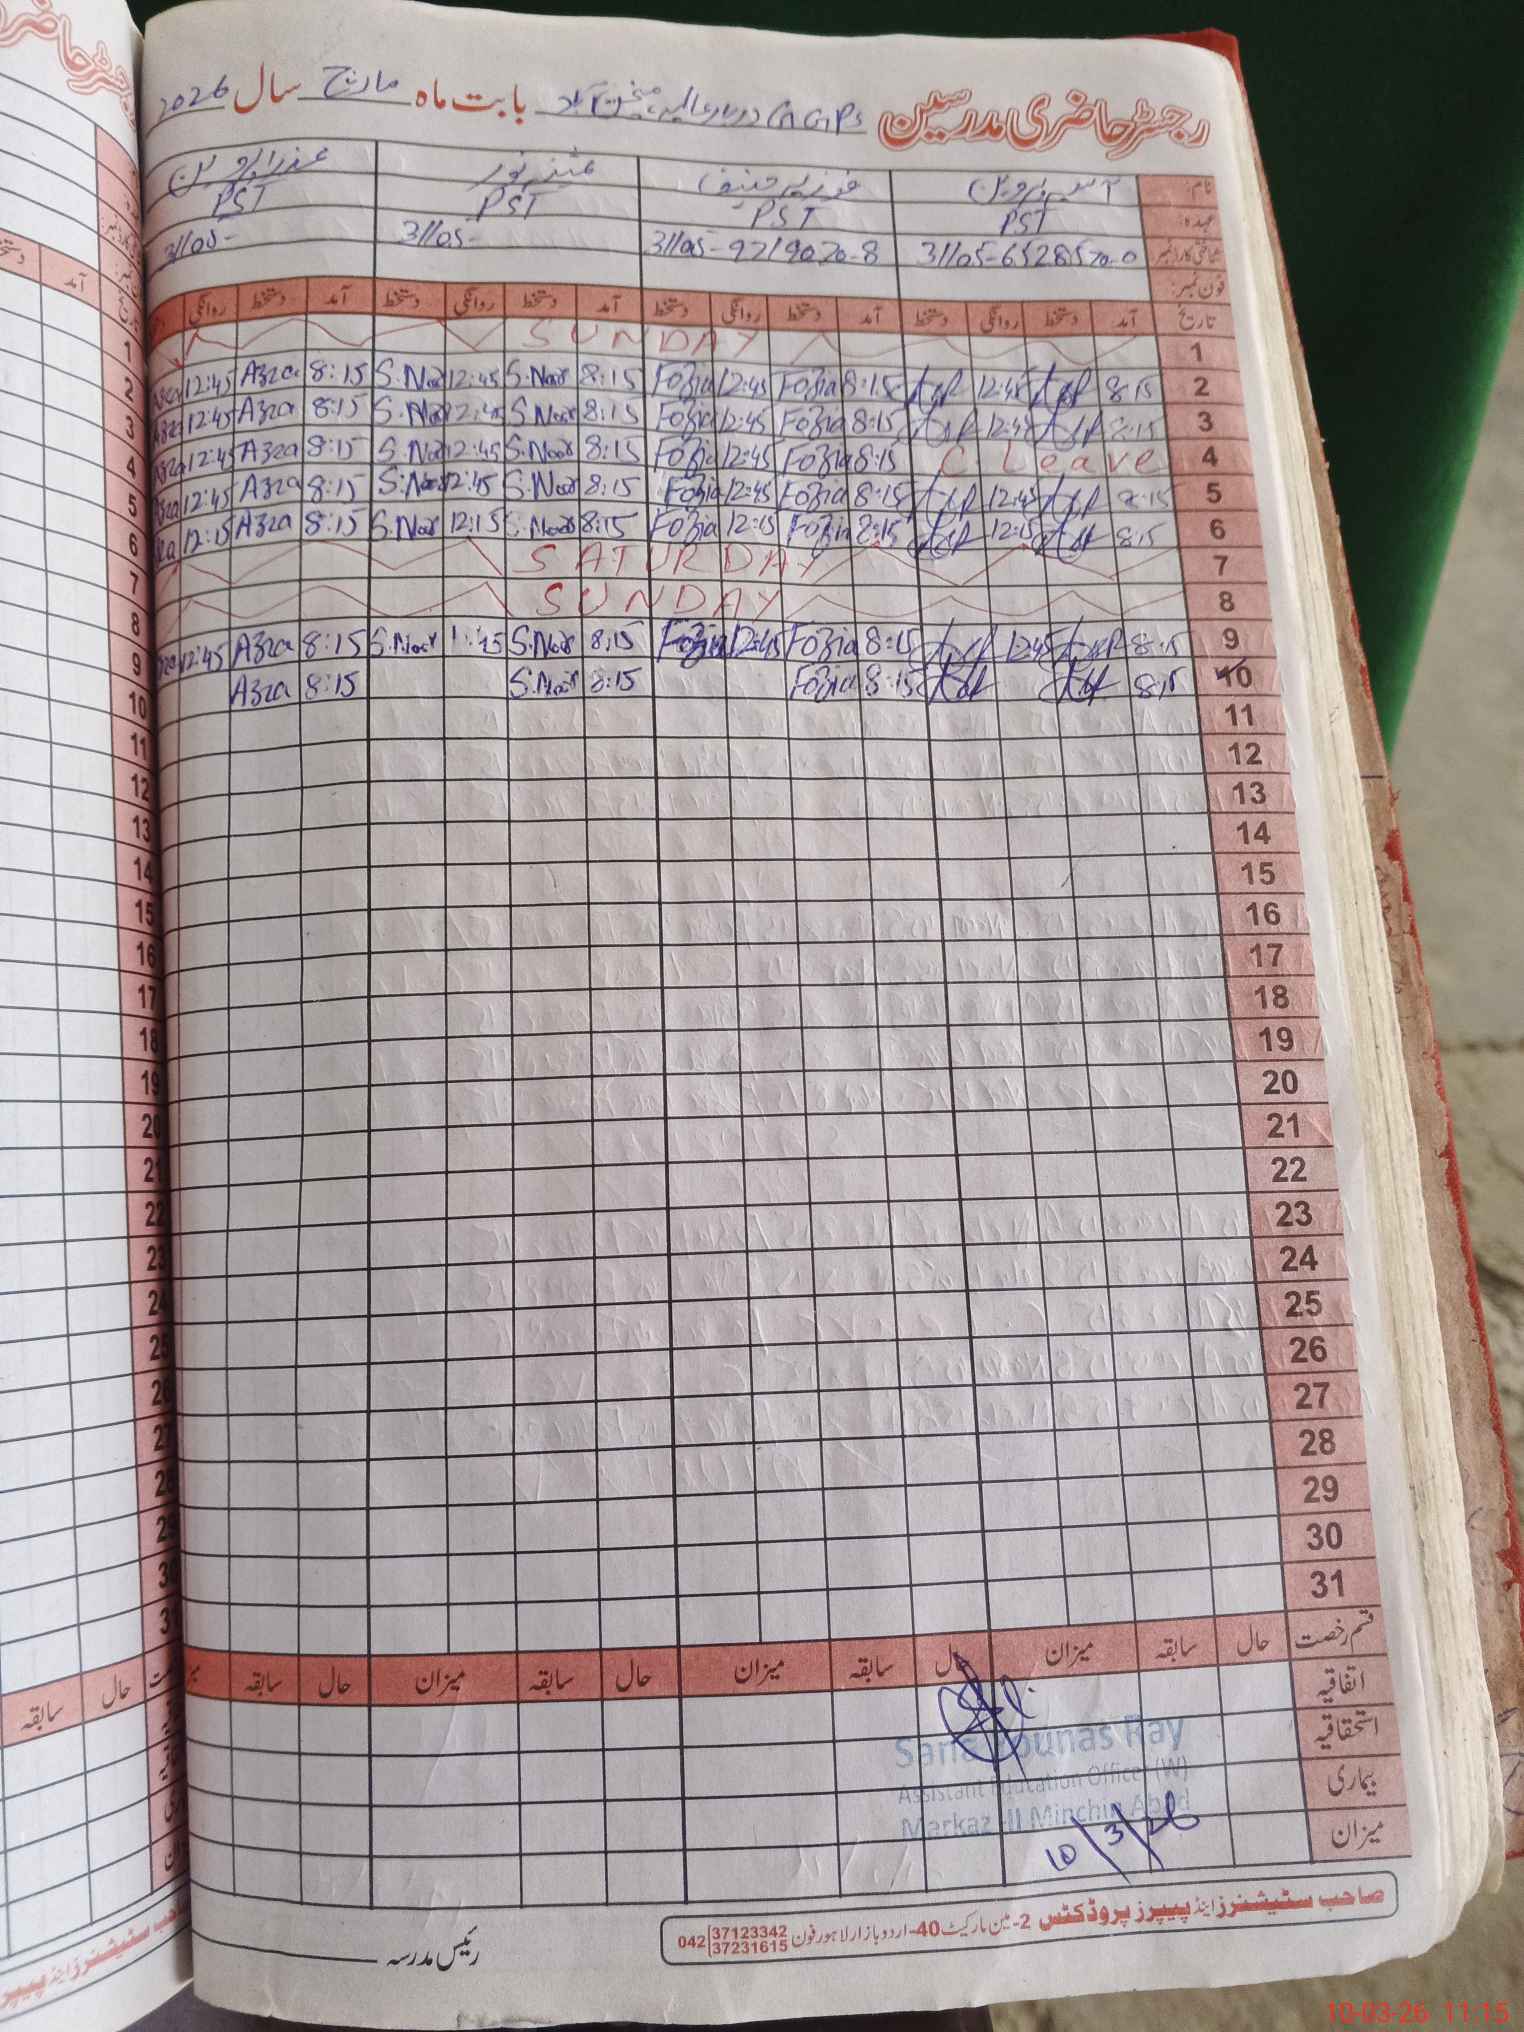 رجسٹر حاضری مدرسین GGPS دربار عالیہ منچن آباد بابت ماہ مارچ سال 2026
نام: آسیہ پروین فوزیہ حنیف نور عذرا پروین
عہدہ: PST PST PST PST
شناختی کارڈ نمبر: 31105-6528570-0 31105-9219020-8 31105- 31105-
فون نمبر:
تاریخ آمد دستخط روانگی دستخط آمد دستخط روانگی دستخط آمد دستخط روانگی دستخط آمد دستخط روانگی
1 SUNDAY
2 8:15 12:45 8:15 Fozia 12:45 Fozia 8:15 S.Noor 12:45 S.Noor 8:15 Azra 12:45 Azra
3 8:15 12:45 8:15 Fozia 12:45 Fozia 8:15 S.Noor 12:45 S.Noor 8:15 Azra 12:45 Azra
4 C. Leave 8:15 Fozia 12:45 Fozia 8:15 S.Noor 12:45 S.Noor 8:15 Azra 12:45 Azra
5 8:15 12:45 8:15 Fozia 12:45 Fozia 8:15 S.Noor 12:45 S.Noor 8:15 Azra 12:45 Azra
6 8:15 12:15 8:15 Fozia 12:15 Fozia 8:15 S.Noor 12:15 S.Noor 8:15 Azra 12:15
7 SATURDAY
8 SUNDAY
9 8:15 12:45 8:15 Fozia 12:45 Fozia 8:15 S.Noor S.Noor 8:15 Azra 12:45
10 8:15 8:15 Fozia 8:15 S.Noor 8:15 Azra
11
12
13
14
15
16
17
18
19
20
21
22
23
24
25
26
27
28
29
30
31
قسم رخصت حال سابقہ میزان حال سابقہ میزان حال سابقہ میزان حال سابقہ
اتفاقیہ
استحقاقیہ
بیماری
میزان
Ray
Assistant Education Officer (W)
Markaz-II Minchin Abad
10/3/26
صاحب سٹیشنرز اینڈ پیپرز پروڈکٹس 2-مین مارکیٹ 40-اردو بازار لاہور فون 042 37123342 37231615
رئیس مدرسہ
10-03-26 11:15